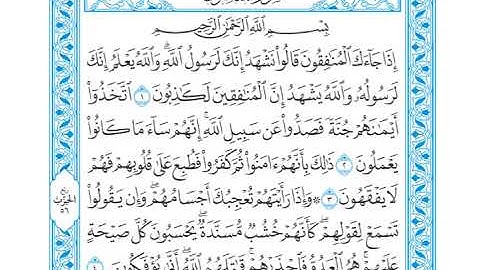 بِسْمِ اللَّهِ الرَّحْمَٰنِ الرَّحِيمِ
إِذَا جَاءَكَ الْمُنَافِقُونَ قَالُوا نَشْهَدُ إِنَّكَ لَرَسُولُ اللَّهِ ۗ وَاللَّهُ يَعْلَمُ إِنَّكَ
لَرَسُولُهُ وَاللَّهُ يَشْهَدُ إِنَّ الْمُنَافِقِينَ لَكَاذِبُونَ ١ اتَّخَذُوا
أَيْمَانَهُمْ جُنَّةً فَصَدُّوا عَن سَبِيلِ اللَّهِ ۚ إِنَّهُمْ سَاءَ مَا كَانُوا
يَعْمَلُونَ ٢ ذَٰلِكَ بِأَنَّهُمْ ءَامَنُوا ثُمَّ كَفَرُوا فَطُبِعَ عَلَىٰ قُلُوبِهِمْ فَهُمْ
لَا يَفْقَهُونَ ٣ ۞ وَإِذَا رَأَيْتَهُمْ تُعْجِبُكَ أَجْسَامُهُمْ ۖ وَإِن يَقُولُوا
تَسْمَعْ لِقَوْلِهِمْ ۖ كَأَنَّهُمْ خُشُبٌ مُّسَنَّدَةٌ ۖ يَحْسَبُونَ كُلَّ صَيْحَةٍ
عَلَيْهِمْ ۚ هُمُ الْعَدُوُّ فَاحْذَرْهُمْ ۚ قَاتَلَهُمُ اللَّهُ ۖ أَنَّىٰ يُؤْفَكُونَ ٤
ربع
الحزب
٥٦